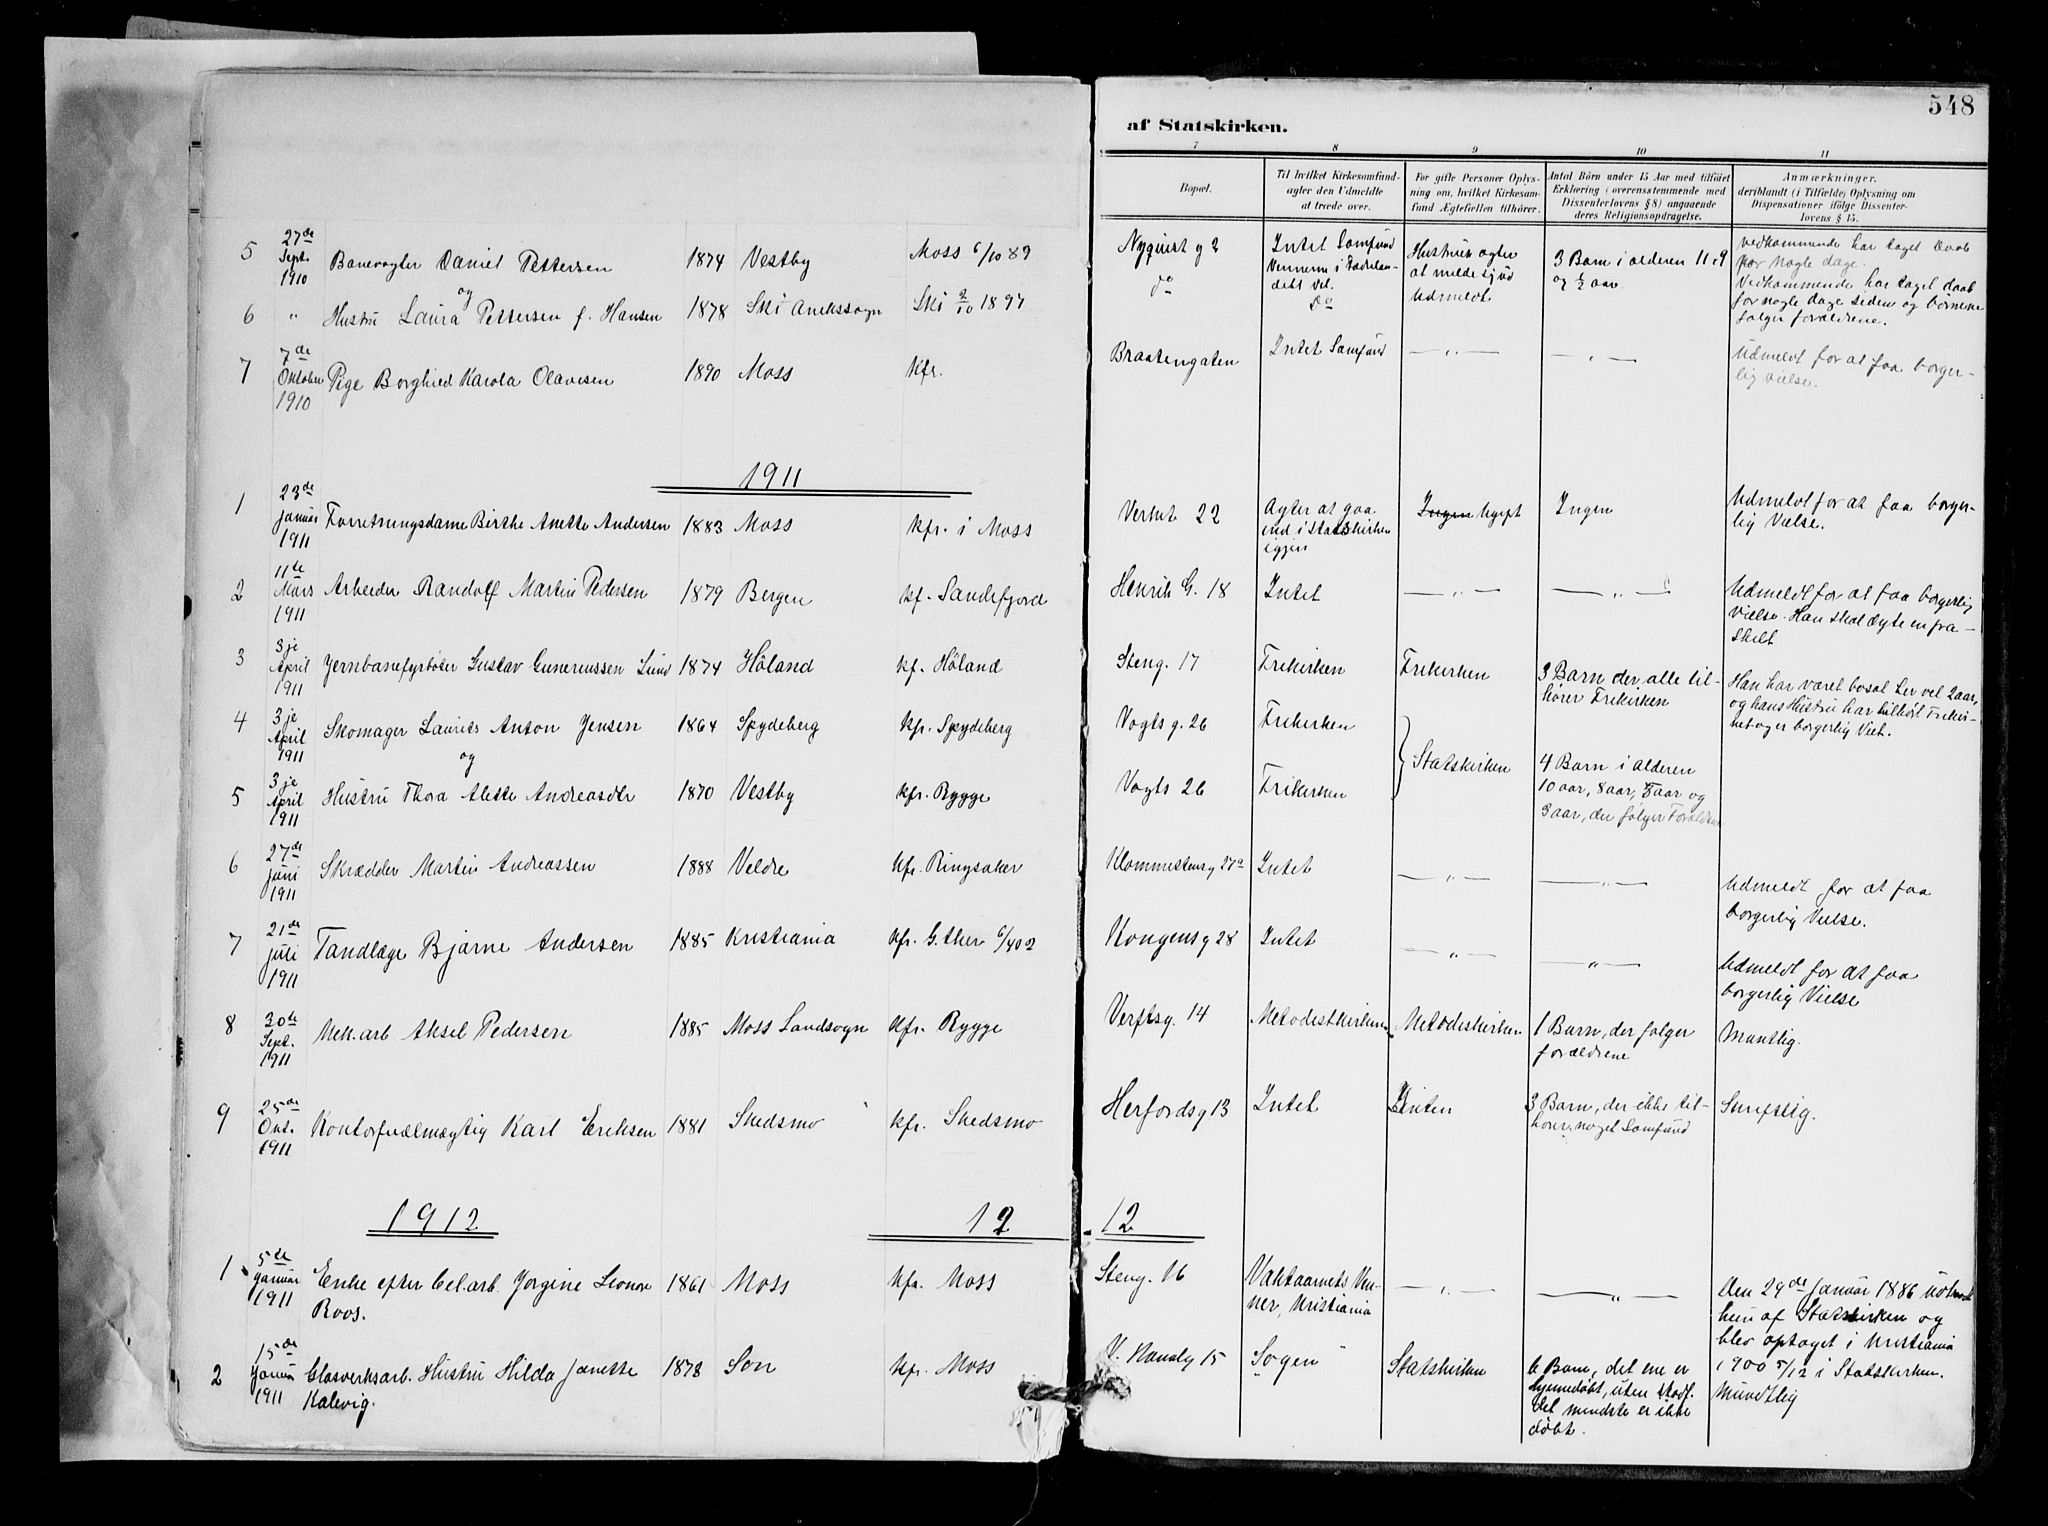 548
af Statskirken.
7 8 9 10 11
Bopæl.
Til hvilket Kirkesamfund-
agter den Udmeldte
at træde over.
For gifte Personer Oplys-
ning om, hvilket Kirkesam-
fund Ægtefællen tilhører.
Antal Börn under 15 Aar med tilföiet
Erklæring (overensstemmende med
Dissenterlovens § 8) angaaende
deres Religionsopdragelse.
Anmærkninger,
deriblandt (i Tilfælde) Oplysning om
Dispensationer ifölge Dissenter-
lovens § 15.
5 27de Sept. 1910 Banevogter Daniel Pettersen 1874 Vestby Moss 6/10 89 Nyquist g 2 Intet Samfund
Vennerne i
det vel.
Hustruen agter
at melde sig ud
Udmeldt
3 Barn i alderen 11, 9
og 1/2 aar
Vedkommende har taget daab
for nogle dage.
og
6 " Hustru Laura Pettersen f. Hansen 1878 Ski Anekssogn Ski 2/10 1897 do Do
Vedkommende har taget daab
for nogle dage siden og börnene
følger forældrene.
7 7de Oktober 1910 Pige Borghild Karola Olavesen 1890 Moss Kfr. Braatengaten Intet Samfund — " — — " —
Udmeldt for at faa borger-
lig vielse.
1911
1 23de Januar 1911 Forretningsdame Birthe Anette Andersen 1883 Moss Kfr. i Moss 22 Agter at gaa
ind i Statskirken
igjen
Ingen Ugift Ingen
Udmeldt for at faa borger-
lig Vielse.
2 11de Mars 1911 Arbeider Randolf Martin Pedersen 1879 Bergen Kf. Sandefjord Henrik G. 18 Intet — " — — " —
Udmeldt for at faa borgerlig
vielse. Han skal ægte en fra-
skilt
3 3je April 1911 Jernbanefyrböter Gustav Gunerussen Lund 1874 Höland Kf. Höland Steng. 17 Frikirken Frikirken
3 Barn der alle til-
hörer Frikirken
Han har været bosat her vel 2 aar,
og hans Hustru har tilhört Frikir-
ken og er borgerlig Viet.
4 3je April 1911 Skomager Laurits Anton Jensen 1864 Spydeberg Kfr. Spydeberg Vogts g. 26 Frikirken
og
Statskirken
5 3je April 1911 Hustru Thora Alette Andreasdtr 1870 Vestby Kfr. Rygge Vogts 26 Frikirken
4 Barn i Alderen
10 aar, 8 aar, 5 aar og
3 aar, der følger Forældrene
6 27de Juni 1911 Skrædder Martin Andreassen 1888 Veldre Kfr. Ringsaker 27a Intet — " — — " —
Udmeldt for at faa
borgerlig Vielse.
7 21de Juli 1911 Tandlæge Bjarne Andersen 1885 Kristiania Kfr. Kongens g 28 Intet — " — — " —
Udmeldt for at faa
borgerlig Vielse
8 30de Sept. 1911 Mek. arb. Aksel Pedersen 1885 Moss Landsogn Kfr. Rygge Verftsg. 14 Metodistkirken Metodiskirken
1 Barn, der følger
forældrene
Muntlig.
9 25de Okt. 1911 Kontorfuldmægtig Karl Eriksen 1881 Skedsmo Kfr. Skedsmo Herfordsg 13 Intet Inten
3 Barn, der ikke til-
hører noget Samfund
Skriftlig.
1912 12 12
1 5de Januar 1911 Enke efter Cel. arb. Jorgine Leonore
Roos.
1861 Moss Kfr. Moss Steng. 16
Vagttaarnets Ven-
ner, Kristiania
— " — — " —
Den 29de Januar 1886
hun af Statskirken og
blev optaget i Kristiania
1900 5/12 i Statskirken.
2 15de Januar 1911 Glasverksarb. Hustru Hilda Janette
Kalevig.
1878 Son Kfr. Moss V. Kanalg 15 Ingen Statskirken
6 Barn, det ene er
hjemmedøbt, uten Stadf.
det mindste er ikke
döbt.
Mundtlig